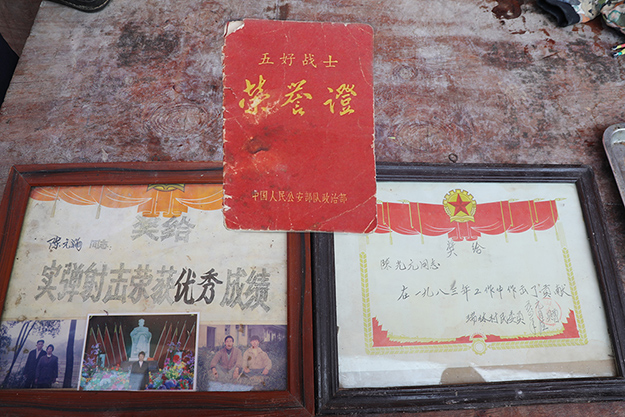 五好战士
荣誉證
中国人民公安部队政治部
奖给
同志
实弹射击荣获优秀成绩
奖给
陈光元同志
在一九八三年工作中作出了贡献